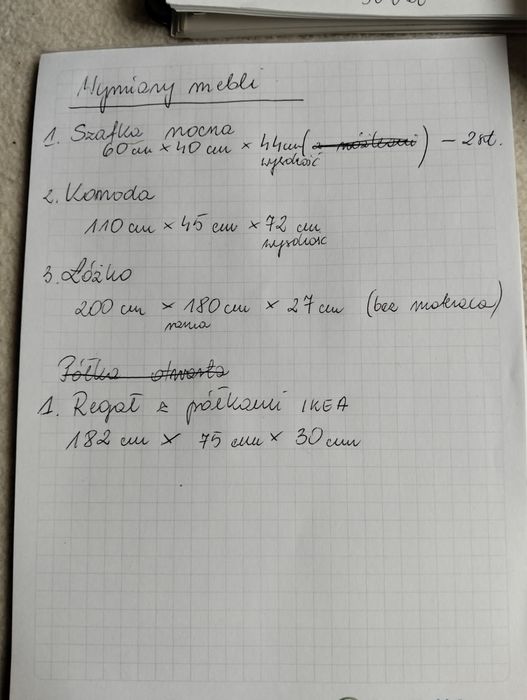 Wymiary mebli
1. Szafka nocna
60 cm × 40 cm × 44 cm (z nóżkami) – 2 szt.
wysokość
2. Komoda
110 cm × 45 cm × 72 cm
wysokość
3. Łóżko
200 cm × 180 cm × 27 cm (bez materaca)
rama
Półka otwarta
1. Regał z półkami IKEA
182 cm × 75 cm × 30 cm